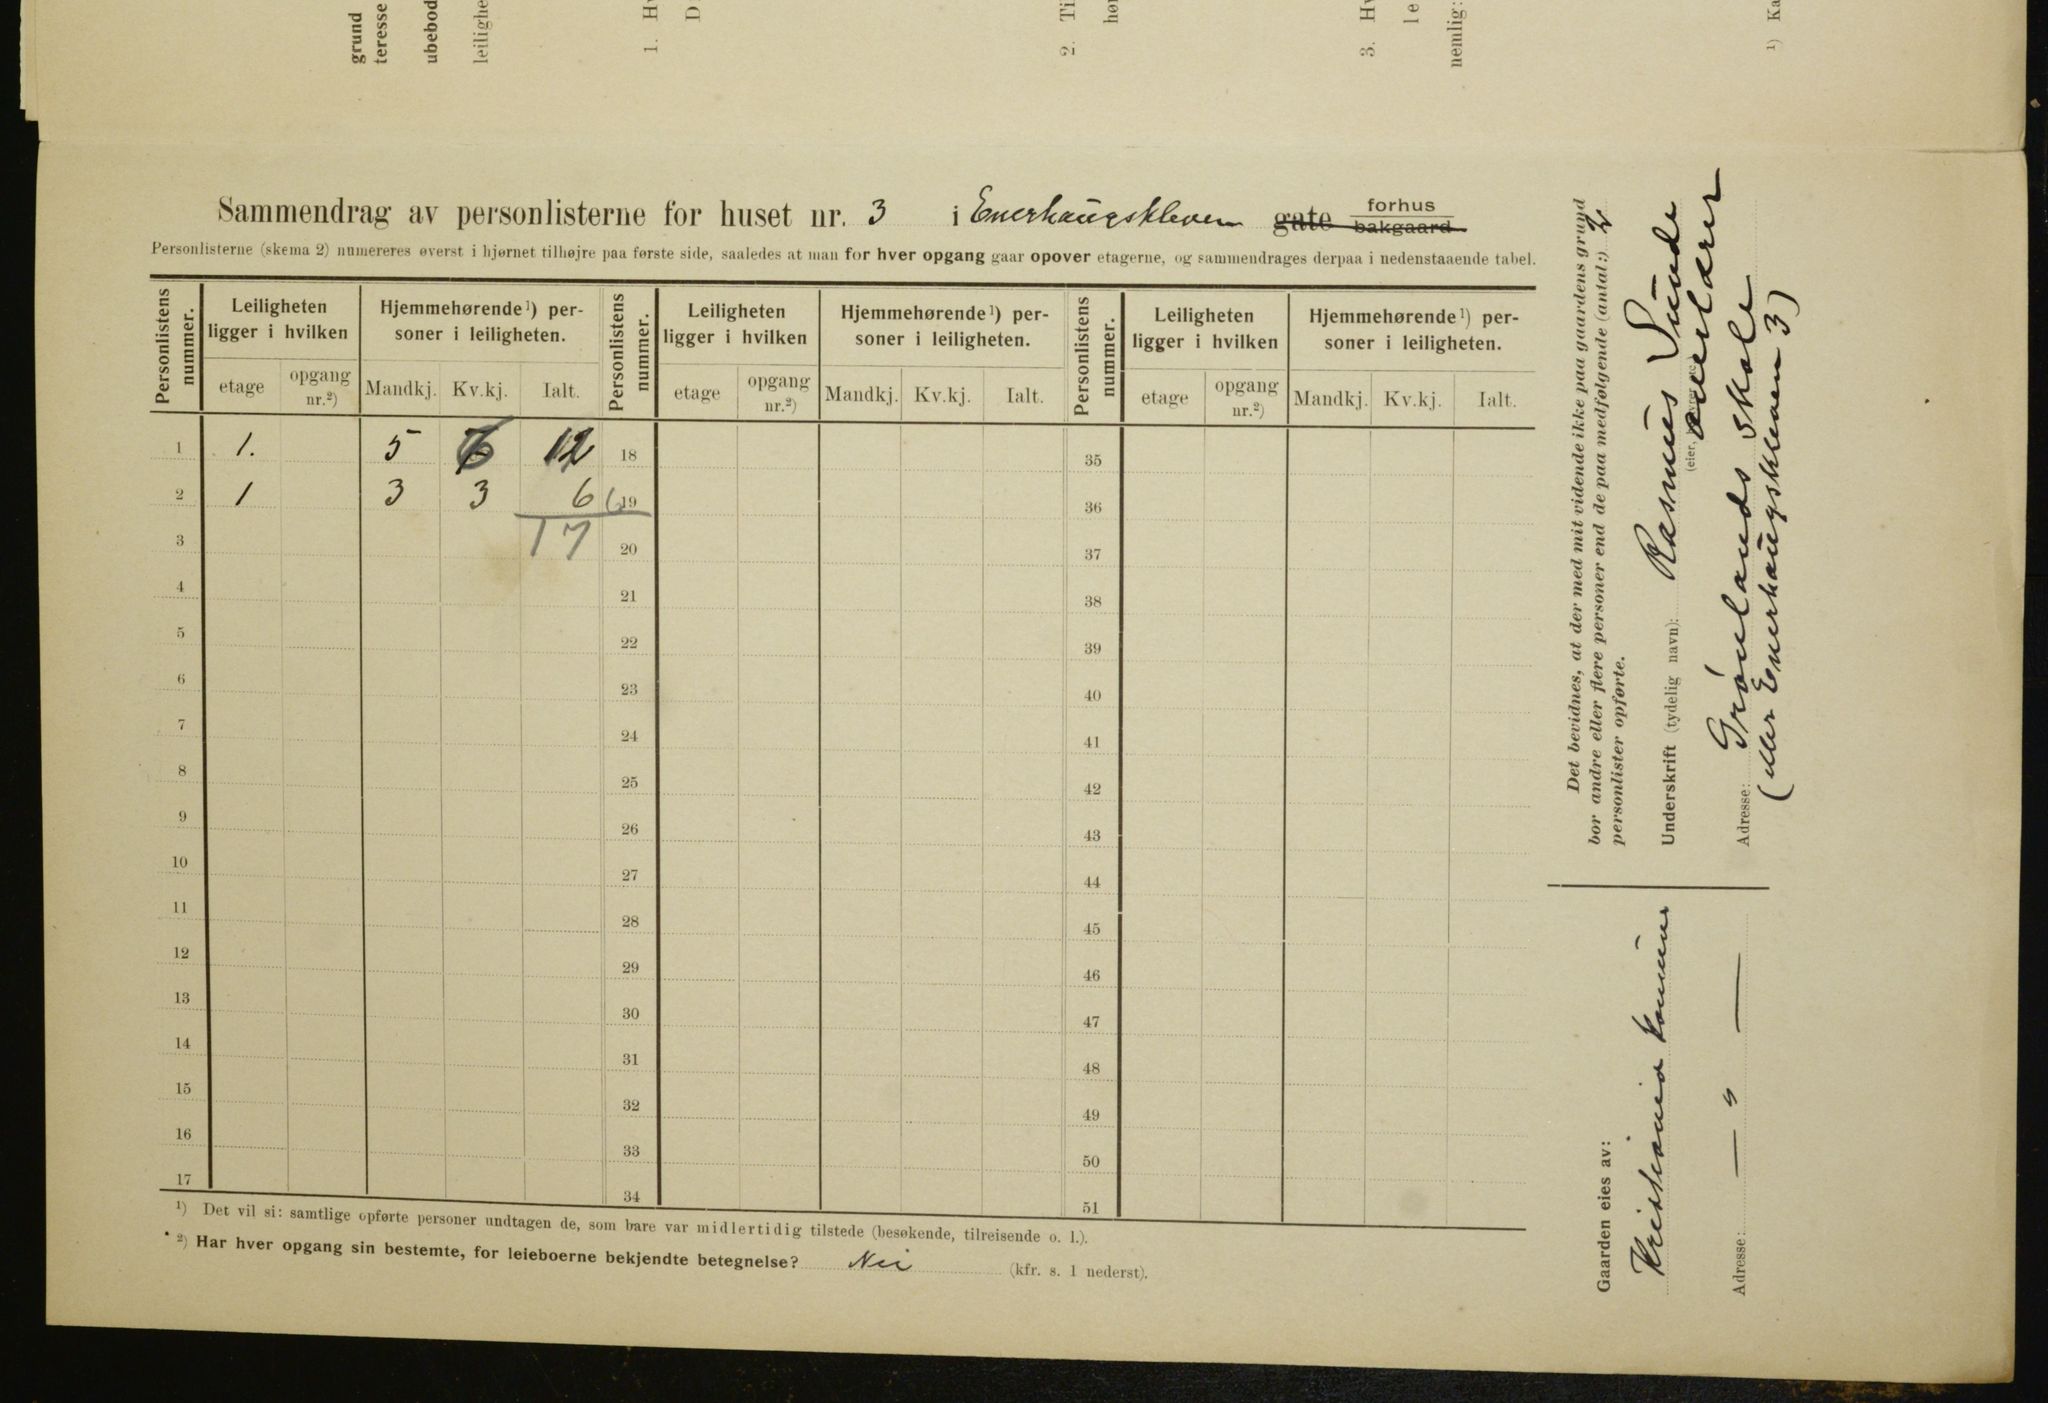 grund
teresse
ubebod
leilighe
1. Hv
D
2. Ti
hør
3. Hv
le
nemlig:
1) Ka
Sammendrag av personlisterne for huset nr. 3 i Enerhaugskleven gate forhus
bakgaard
Personlisterne (skema 2) numereres øverst i hjørnet tilhøjre paa første side, saaledes at man for hver opgang gaar opover etagerne, og sammendrages derpaa i nedenstaaende tabel.
Personlistens nummer. Leiligheten ligger i hvilken Hjemmehørende 1) personer i leiligheten. Personlistens nummer. Leiligheten ligger i hvilken Hjemmehørende 1) personer i leiligheten. Personlistens nummer. Leiligheten ligger i hvilken Hjemmehørende 1) personer i leiligheten.
etage opgang nr.2) Mandkj. Kv.kj. Ialt. etage opgang nr.2) Mandkj. Kv.kj. Ialt. etage opgang nr.2) Mandkj. Kv.kj. Ialt.
1 1. 5 12 18 35
2 1 3 3 6 19 36
3 17 20 37
4 21 38
5 22 39
6 23 40
7 24 41
8 25 42
9 26 43
10 27 44
11 28 45
12 29 46
13 30 47
14 31 48
15 32 49
16 33 50
17 34 51
1) Det vil si: samtlige opførte personer undtagen de, som bare var midlertidig tilstede (besøkende, tilreisende o. l.).
2) Har hver opgang sin bestemte, for leieboerne bekjendte betegnelse? Nei (kfr. s. 1 nederst).
Det bevidnes, at der med mit vidende ikke paa gaardens grund
bor andre eller flere personer end de paa medfølgende (antal:) 2
personlister opførte.
Underskrift (tydelig navn): Rasmus Sunde
overlærer
Adresse: Grönlands skole
(eller Enerhaugskleven 3)
Gaarden eies av:
Kristiania komune
Adresse: — " —